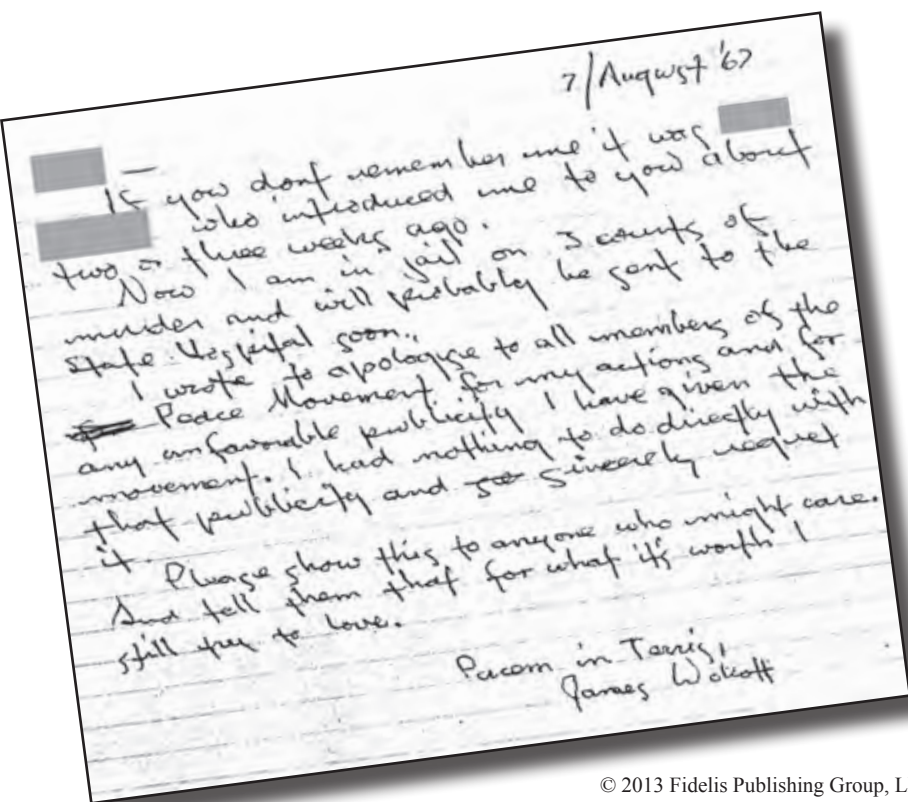 7/August '67
—
If you dont remember me it was
who introduced me to you about
two or three weeks ago.
Now I am in jail on 3 counts of
murder and will probably be sent to the
State Hospital soon.
I wrote to apologize to all members of the
Peace Movement for my actions and for
any unfavourable publicity I have given the
movement. I had nothing to do directly with
that publicity and sincerely regret
it.
Please show this to anyone who might care.
And tell them that for what it's worth I
still try to love.
Pacem in Terris,
James Wolcott
© 2013 Fidelis Publishing Group, L